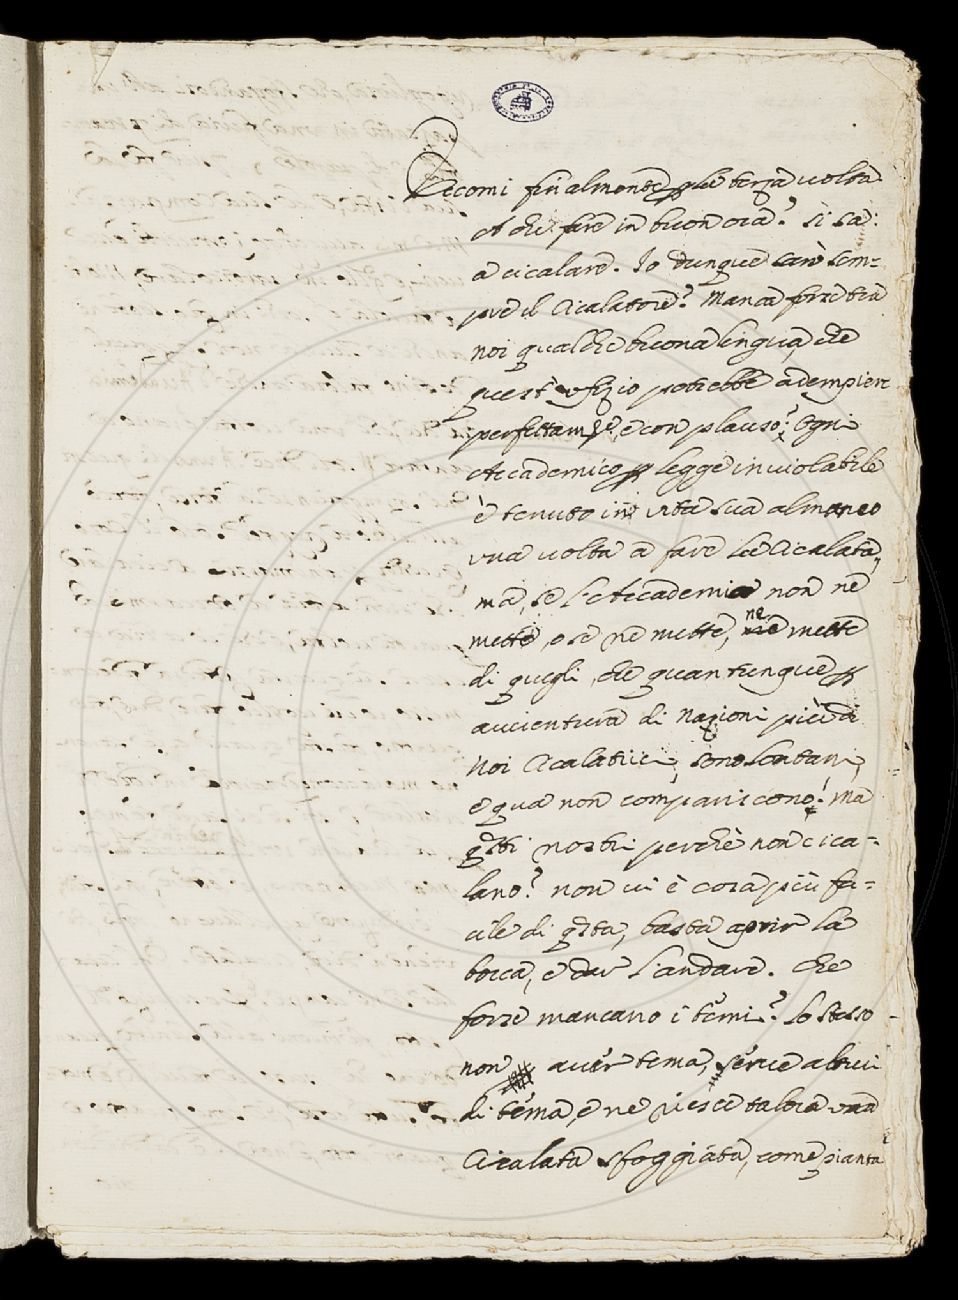 Eccomi finalmente p la terza uolta
A che fare in buon ora? Si sa:
a cicalare. Io dunque sarò sem=
pre il Cicalatore? Manca forse tra
noi qualche buona lingua, che
quest' ufizio potrebbe adempiere
perfettamte, e con plauso? Ogni
Accademico p legge inuiolabile
è tenuto in uita sua almeno
vna uolta a fare la Cicalata,
ma, se l'Accademia non ne
mette, o se ne mette, ne mette
di quegli, che quantunque p
auuentura di Nazioni più di
Noi Cicalatrici, sono lontani,
e qua non compariscono! Ma
qsti nostri perchè non cica=
lano? non ui è cosa più fa=
cile di qsta, basta aprir la
bocca, e dar l'andare. Che
forse mancano i temi? Lo stesso
non auer tema, serue altrui
di tema, e ne riesce talora vna
Cicalata sfoggiata, come pianta